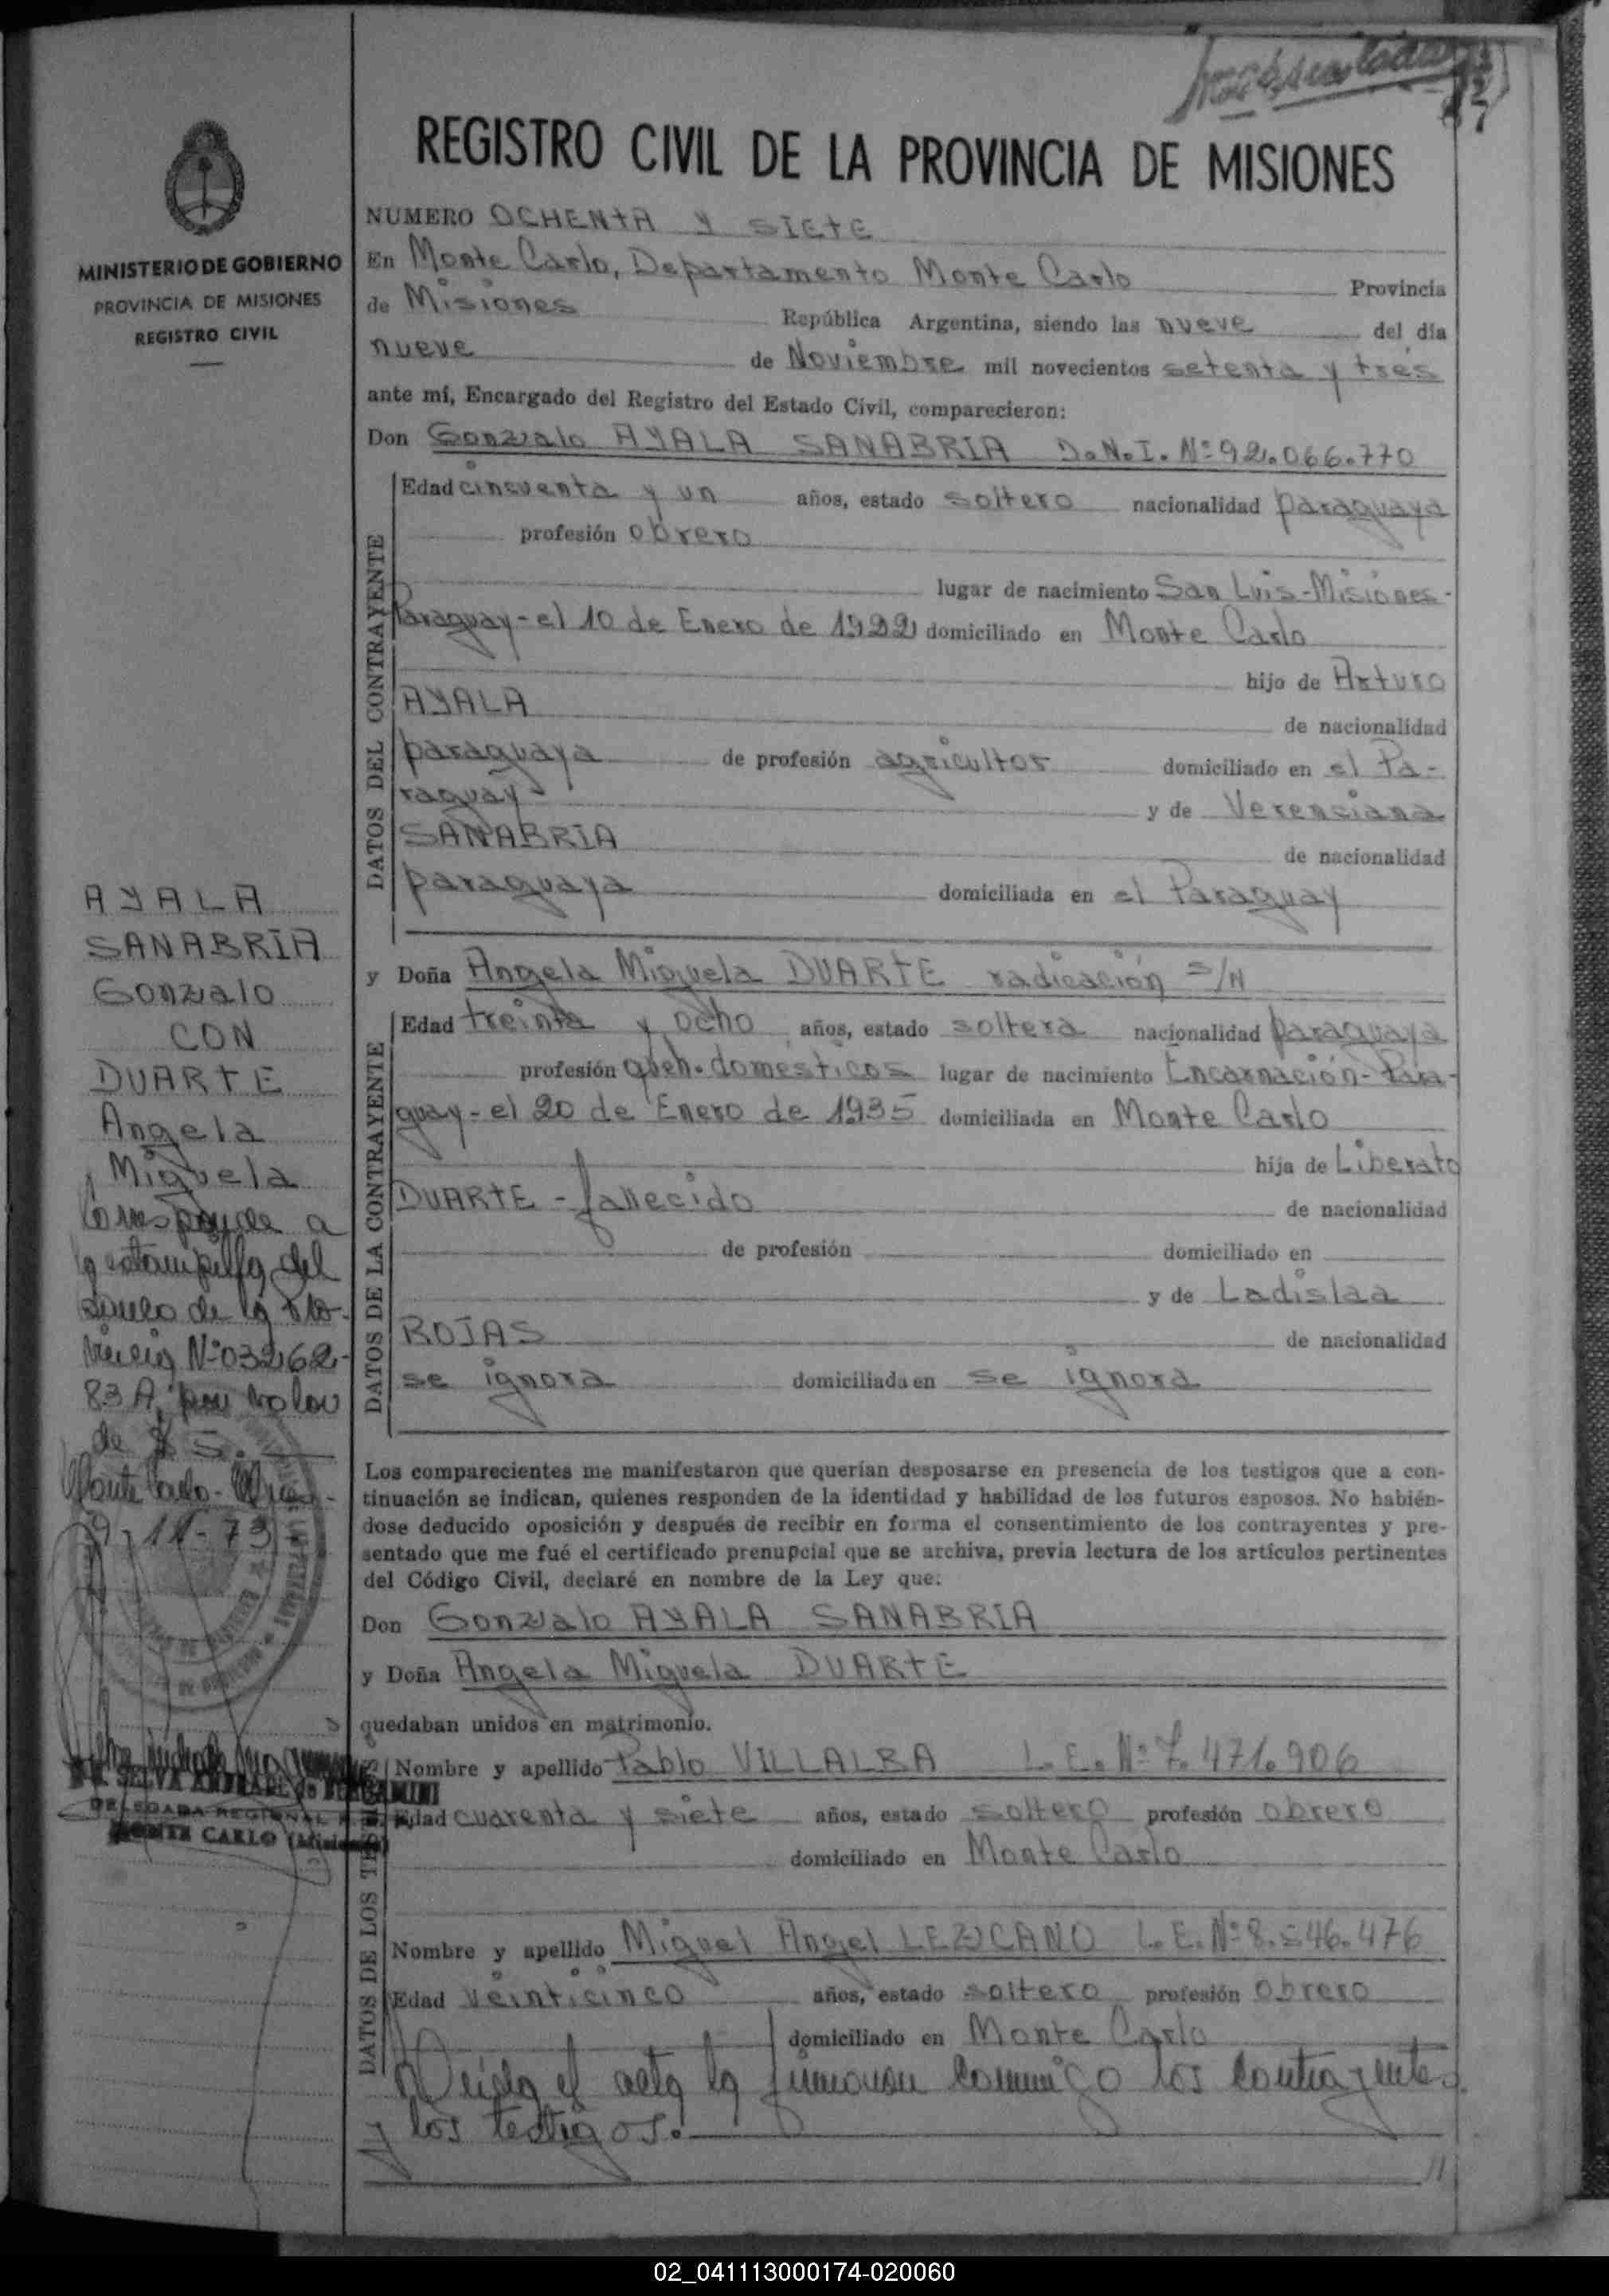 REGISTRO CIVIL DE LA PROVINCIA DE MISIONES
MINISTERIO DE GOBIERNO
PROVINCIA DE MISIONES
REGISTRO CIVIL
NUMERO OCHENTA Y SIETE
En Monte Carlo, Departamento Monte Carlo Provincia
de Misiones República Argentina, siendo las nueve del día
nueve de Noviembre mil novecientos setenta y tres
ante mí, Encargado del Registro del Estado Civil, comparecieron:
Don Gonzalo AYALA SANABRIA D.N.I. Nº 92.066.770
DATOS DEL CONTRAYENTE
Edad cincuenta y un años, estado soltero nacionalidad paraguaya
profesión obrero
lugar de nacimiento San Luis-Misiones-
Paraguay-el 10 de Enero de 1922 domiciliado en Monte Carlo
hijo de Arturo
AYALA de nacionalidad
paraguaya de profesión agricultor domiciliado en el Pa-
raguay y de Verenciana
SANABRIA de nacionalidad
paraguaya domiciliada en el Paraguay
y Doña Angela Miguela DUARTE radicación S/N
DATOS DE LA CONTRAYENTE
Edad treinta y ocho años, estado soltera nacionalidad paraguaya
profesión queh. domésticos lugar de nacimiento Encarnación-Para-
guay-el 20 de Enero de 1935 domiciliada en Monte Carlo
hija de Liberato
DUARTE - fallecido de nacionalidad
de profesión domiciliado en
y de Ladislaa
ROJAS de nacionalidad
se ignora domiciliada en se ignora
AYALA
SANABRIA
Gonzalo
CON
DUARTE
Angela
Miguela
Corresponde a
la estampilla del
Banco de la Pro-
vincia Nº 03262-
83 A, por valor
de $ 5.
Monte Carlo-
9-11-73
DELEGADA REGIONAL
MONTE CARLO (Misiones)
Los comparecientes me manifestaron que querían desposarse en presencia de los testigos que a con-
tinuación se indican, quienes responden de la identidad y habilidad de los futuros esposos. No habién-
dose deducido oposición y después de recibir en forma el consentimiento de los contrayentes y pre-
sentado que me fué el certificado prenupcial que se archiva, previa lectura de los artículos pertinentes
del Código Civil, declaré en nombre de la Ley que:
Don Gonzalo AYALA SANABRIA
y Doña Angela Miguela DUARTE
quedaban unidos en matrimonio.
DATOS DE LOS
Nombre y apellido Pablo VILLALBA L.E. Nº 7.471.906
Edad cuarenta y siete años, estado soltero profesión obrero
domiciliado en Monte Carlo
Nombre y apellido Miguel Angel LEZCANO L.E. Nº 8.546.476
Edad veinticinco años, estado soltero profesión obrero
domiciliado en Monte Carlo
Leída el acta la firmaron conmigo los contrayentes
y los testigos.
02_041113000174-020060